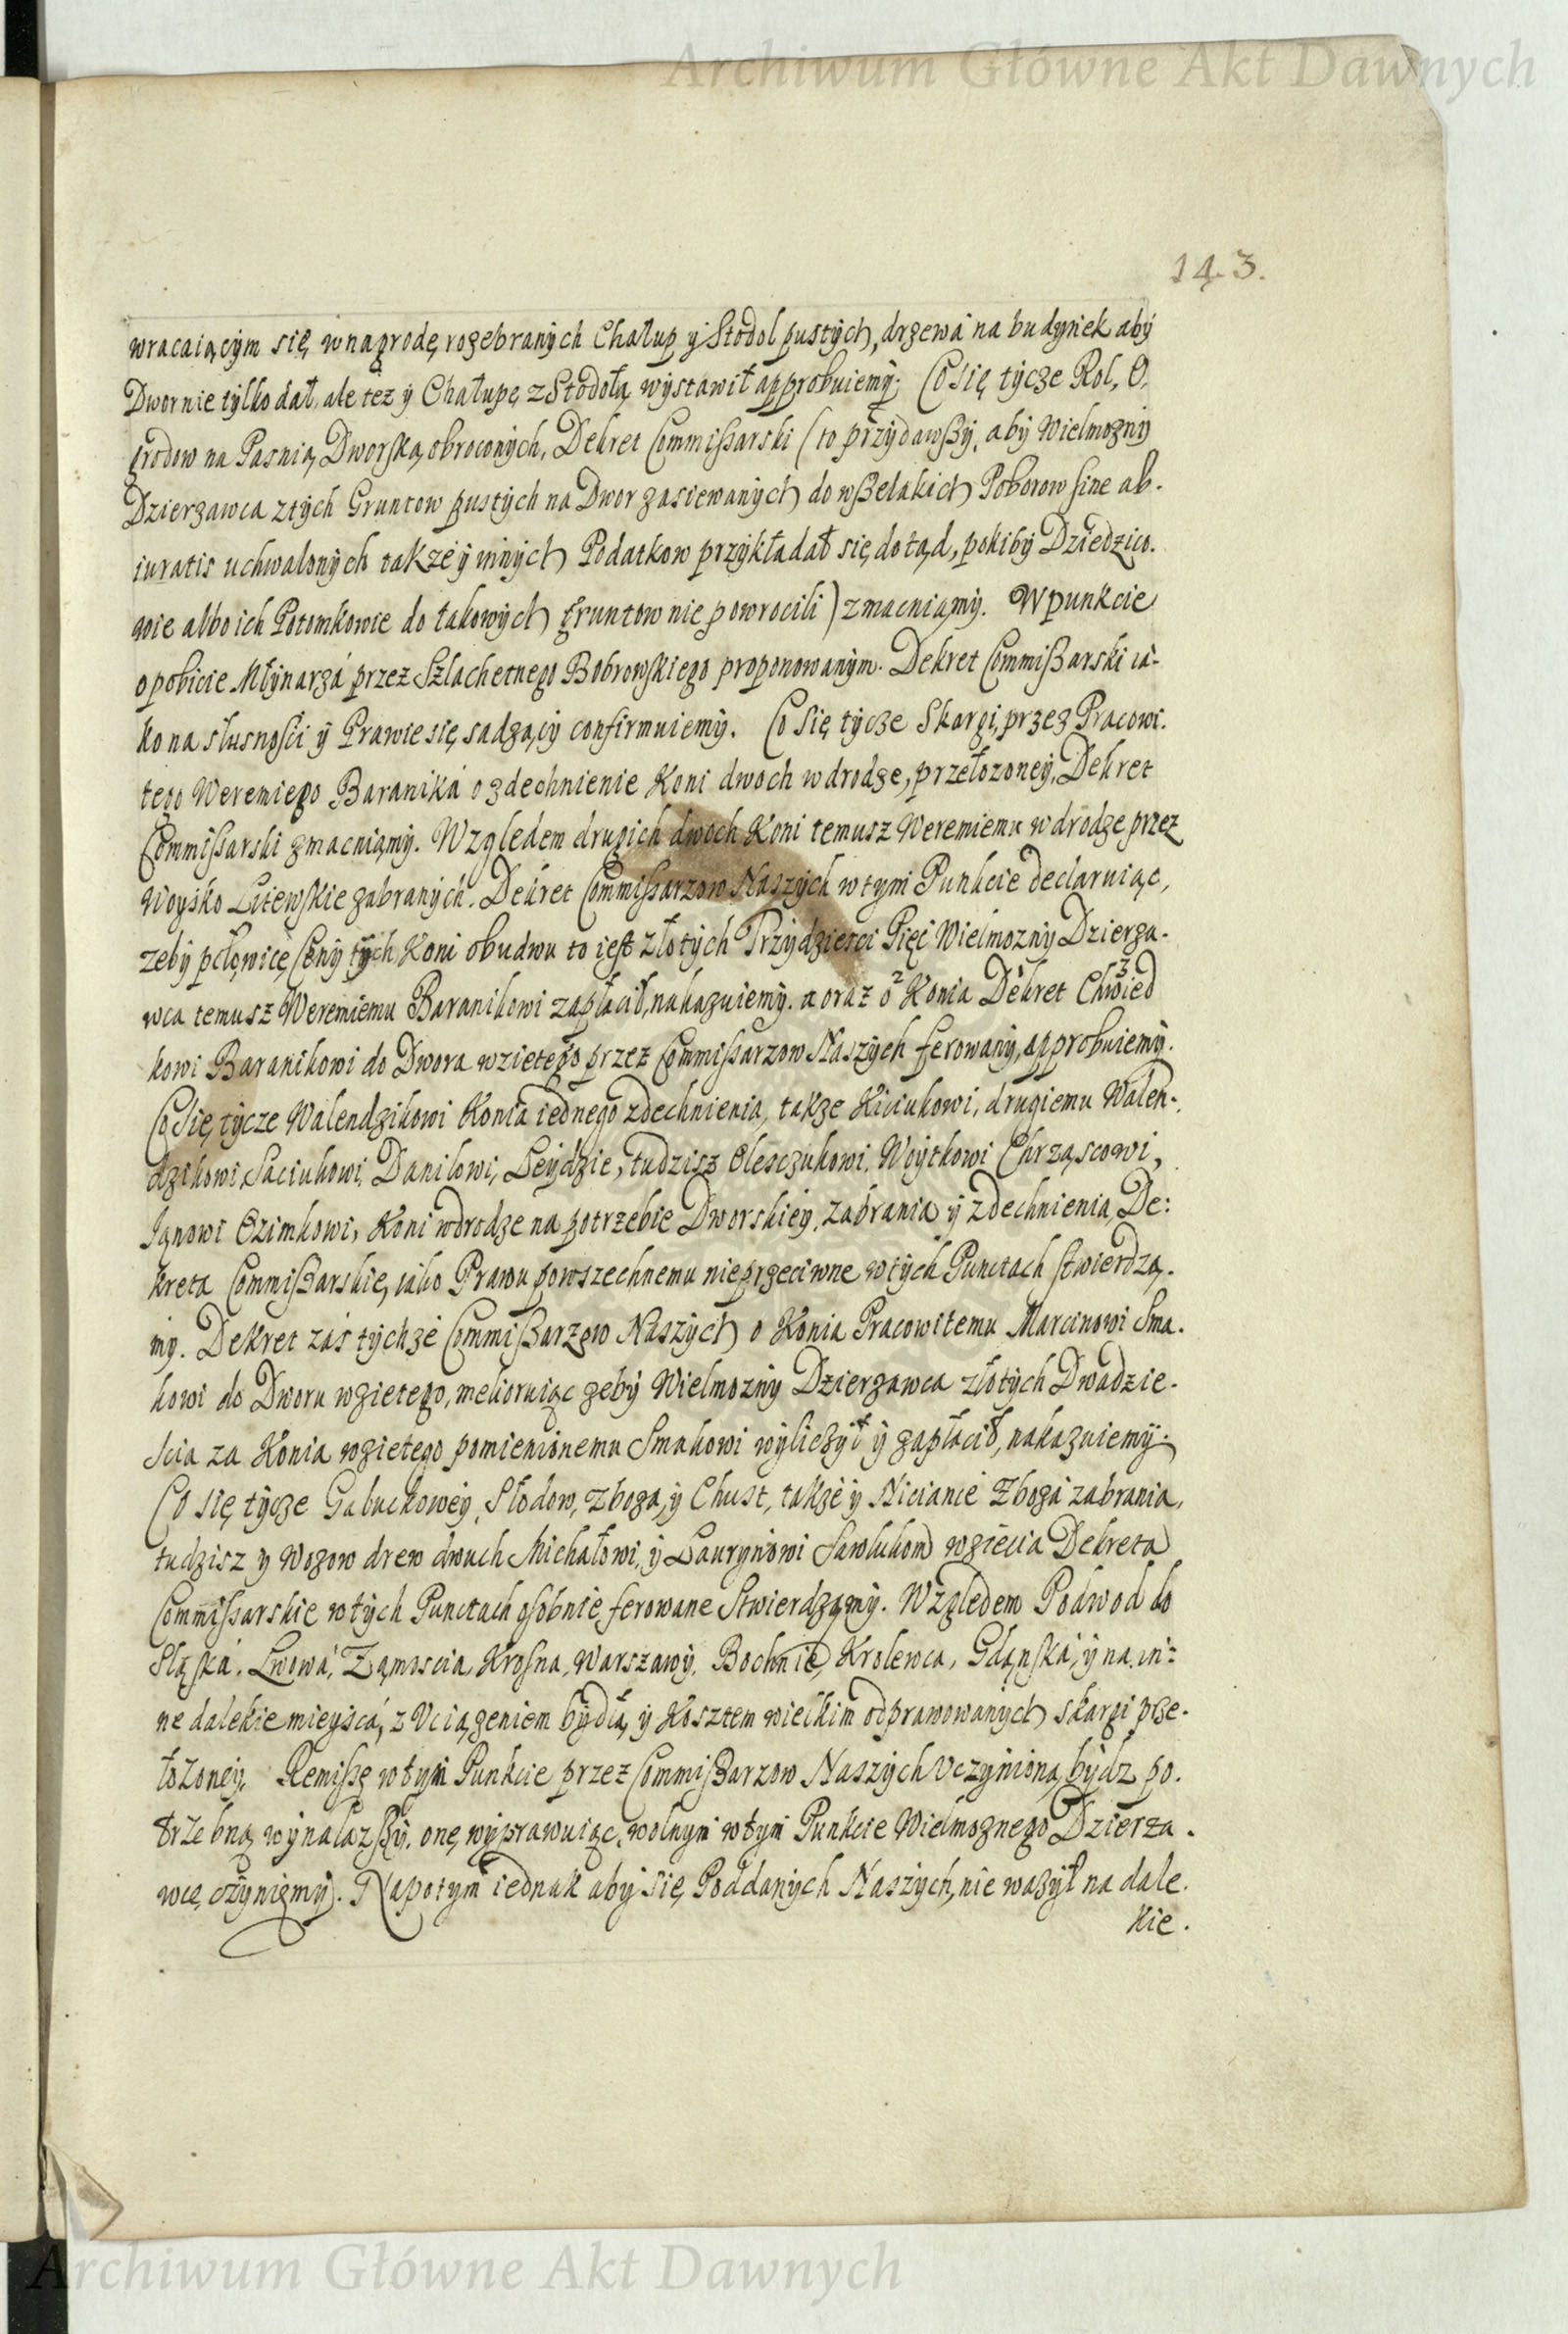 Archiwum Główne Akt Dawnych
143.
wracaiącym się, w nagrodę rozebranych Chałup y Stodol pustych, drzewa na budynek aby
Dwor nie tylko dał, ale tez y Chałupę z Stodołą wystawił approbuiemy. Co się tycze Rol, O,
grodow na Pasnią Dworską obroconych, Dekret Commissarski (to przydawszy, aby Wielmozny
Dzierzawca z tych Gruntow pustych na Dwor zasiewanych do wszelakich Poborow sine ab-
iuratis uchwalonych takze y innych Podatkow przykładał się dotąd, pokiby Dziedzico-
wie albo ich Potomkowie do takowych gruntow nie powrocili) zmacniamy. W punkcie
o pobicie Młynarza przez Szlachetnego Bobrowskiego proponowanym. Dekret Commissarski ia-
ko na słusnosci y Prawie się sadzący confirmuiemy. Co się tycze Skargi, przez Pracowi-
tego Weremiego Baranika o zdechnienie Koni dwoch w drodze, przełozoney, Dekret
Commissarski zmacniamy. Względem drugich dwoch Koni temusz Weremiemu w drodze przez
Woysko Litewskie zabranych. Dekret Commissarzow Naszych w tym Punkcie declaruiąc,
zeby połowicę Ceny tych Koni obudwu to iest złotych Trzydziesci Pięc Wielmozny Dzierza-
wca temusz Weremiemu Baranikowi zapłacił, nakazuiemy. a oraz o 2 Konia 1 Dekret 3 Chwied
kowi Baranikowi do Dwora wzietego przez Commissarzow Naszych ferowany, approbuiemy.
Co się tycze Walendzikowi Konia iednego zdechnienia, takze Kiciukowi, drugiemu Walen-
dzikowi, Saciukowi, Danilowi, Leydzie, tudzisz Olesczukowi, Woytkowi Chrząscowi,
Janowi Ozimkowi, Koni w drodze na potrzebie Dworskiey, zabrania y zdechnienia, De:
kreta Commissarskie, iako Prawu powszechnemu nieprzeciwne w tych Punctach stwierdza-
my. Dekret zas tychze Commissarzow Naszych o Konia Pracowitemu Marcinowi Sma-
kowi do Dworu wzietego, melioruiąc zeby Wielmozny Dzierzawca złotych Dwadzie-
scia za Konia wzietego pomienionemu Smakowi wyliczył y zapłacił, nakazuiemy.
Co się tycze Gabuckowey, Słodow, zboza, y Chust, takze y Niciance Zboza zabrania,
tudzisz y Wozow drew dwuch Michałowi, y Laurynowi Sawlukom wziecia Dekreta
Commissarskie w tych Punctach osobnie ferowane Stwierdzamy. Względem Podwod do
Sląska, Lwowa, Zamoscia, Krosna, Warszawy, Bochnie, Krolewca, Gdanska, y na in:
ne dalekie mieysca, z Uciązeniem bydła, y Kosztem wielkim odprawowanych skargi prze-
łozoney, Remissę w tym Punkcie przez Commissarzow Naszych Uczynioną bydz po-
trzebną wynalazszy, onę, wyprawuiąc, wolnym w tym Punkcie Wielmoznego Dzierza-
wcę czyniemy. Napotym iednak aby się Poddanych Naszych, nie wazył na dale-
kie.
Archiwum Główne Akt Dawnych